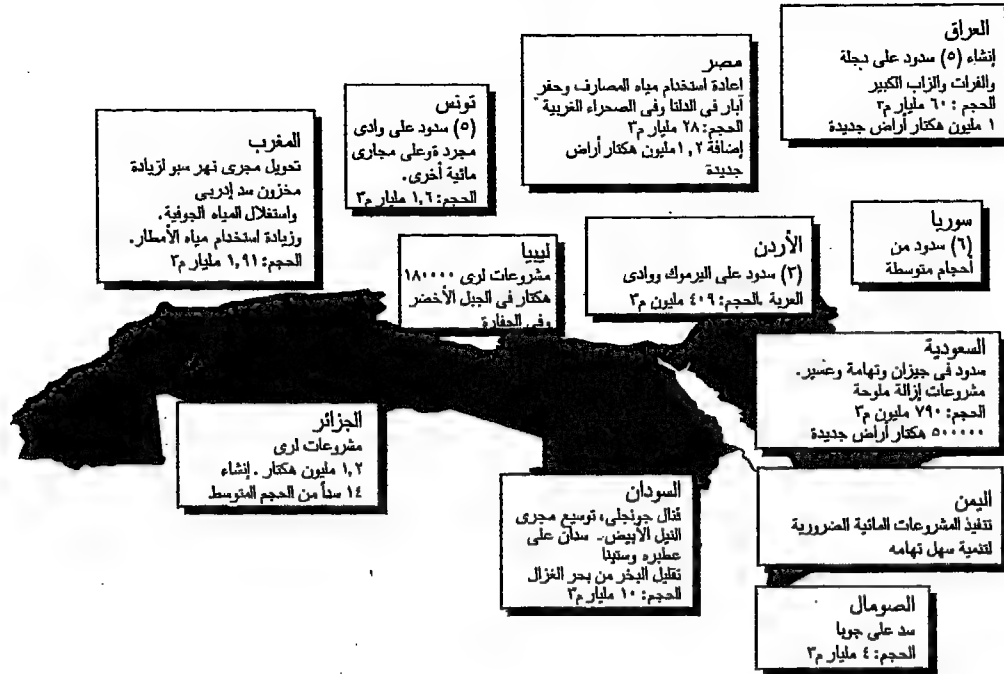 العراق
إنشاء (٥) سدود على دجلة
والفرات والزاب الكبير
الحجم : ٦٠ مليار م٣
١ مليون هكتار أراض جديدة
مصر
اعادة استخدام مياه المصارف وحفر
آبار فى الدلتا وفى الصحراء الغربية
الحجم: ٢٨ مليار م٣
إضافة ١,٢ مليون هكتار أراض
جديدة
تونس
(٥) سدود على وادى
مجرد ةوعلى مجارى
مائية أخرى.
الحجم: ١,٦ مليار م٣
المغرب
تحويل مجرى نهر سبو لزيادة
مخزون سد إدريى
واستغلال المياه الجوفية.
وزيادة استخدام مياه الأمطار.
الحجم: ١,٩١ مليار م٣
سوريا
(٦) سدود من
أحجام متوسطة
الأردن
(٣) سدود على اليرموك ووادى
العربة .الحجم: ٤٠٩ مليون م٣
ليبيا
مشروعات لرى ١٨٠٠٠٠
هكتار فى الجبل الأخضر
وفى الجفارة
السعودية
سدود فى جيزان وتهامة وعسير.
مشروعات إزالة ملوحة
الحجم: ٧٩٠ مليون م٣
٥٠٠٠٠٠ هكتار أراض جديدة
الجزائر
مشروعات لرى
١,٢ مليون هكتار . إنشاء
١٤ سداً من الحجم المتوسط
السودان
قنال جونجلى، توسيع مجرى
النيل الأبيض.. سدان على
عطبره وستيتا
تقليل البخر من بحر الغزال
الحجم: ١٠ مليار م٣
اليمن
تنفيذ المشروعات المائية الضرورية
لتنمية سهل تهامه
الصومال
سد على جوبا
الحجم: ٤ مليار م٣